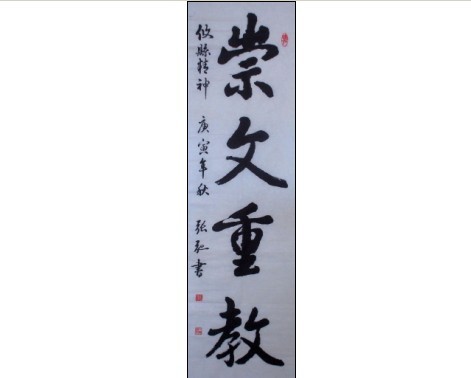 崇文重教
攸縣精神 庚寅年秋 張弘書